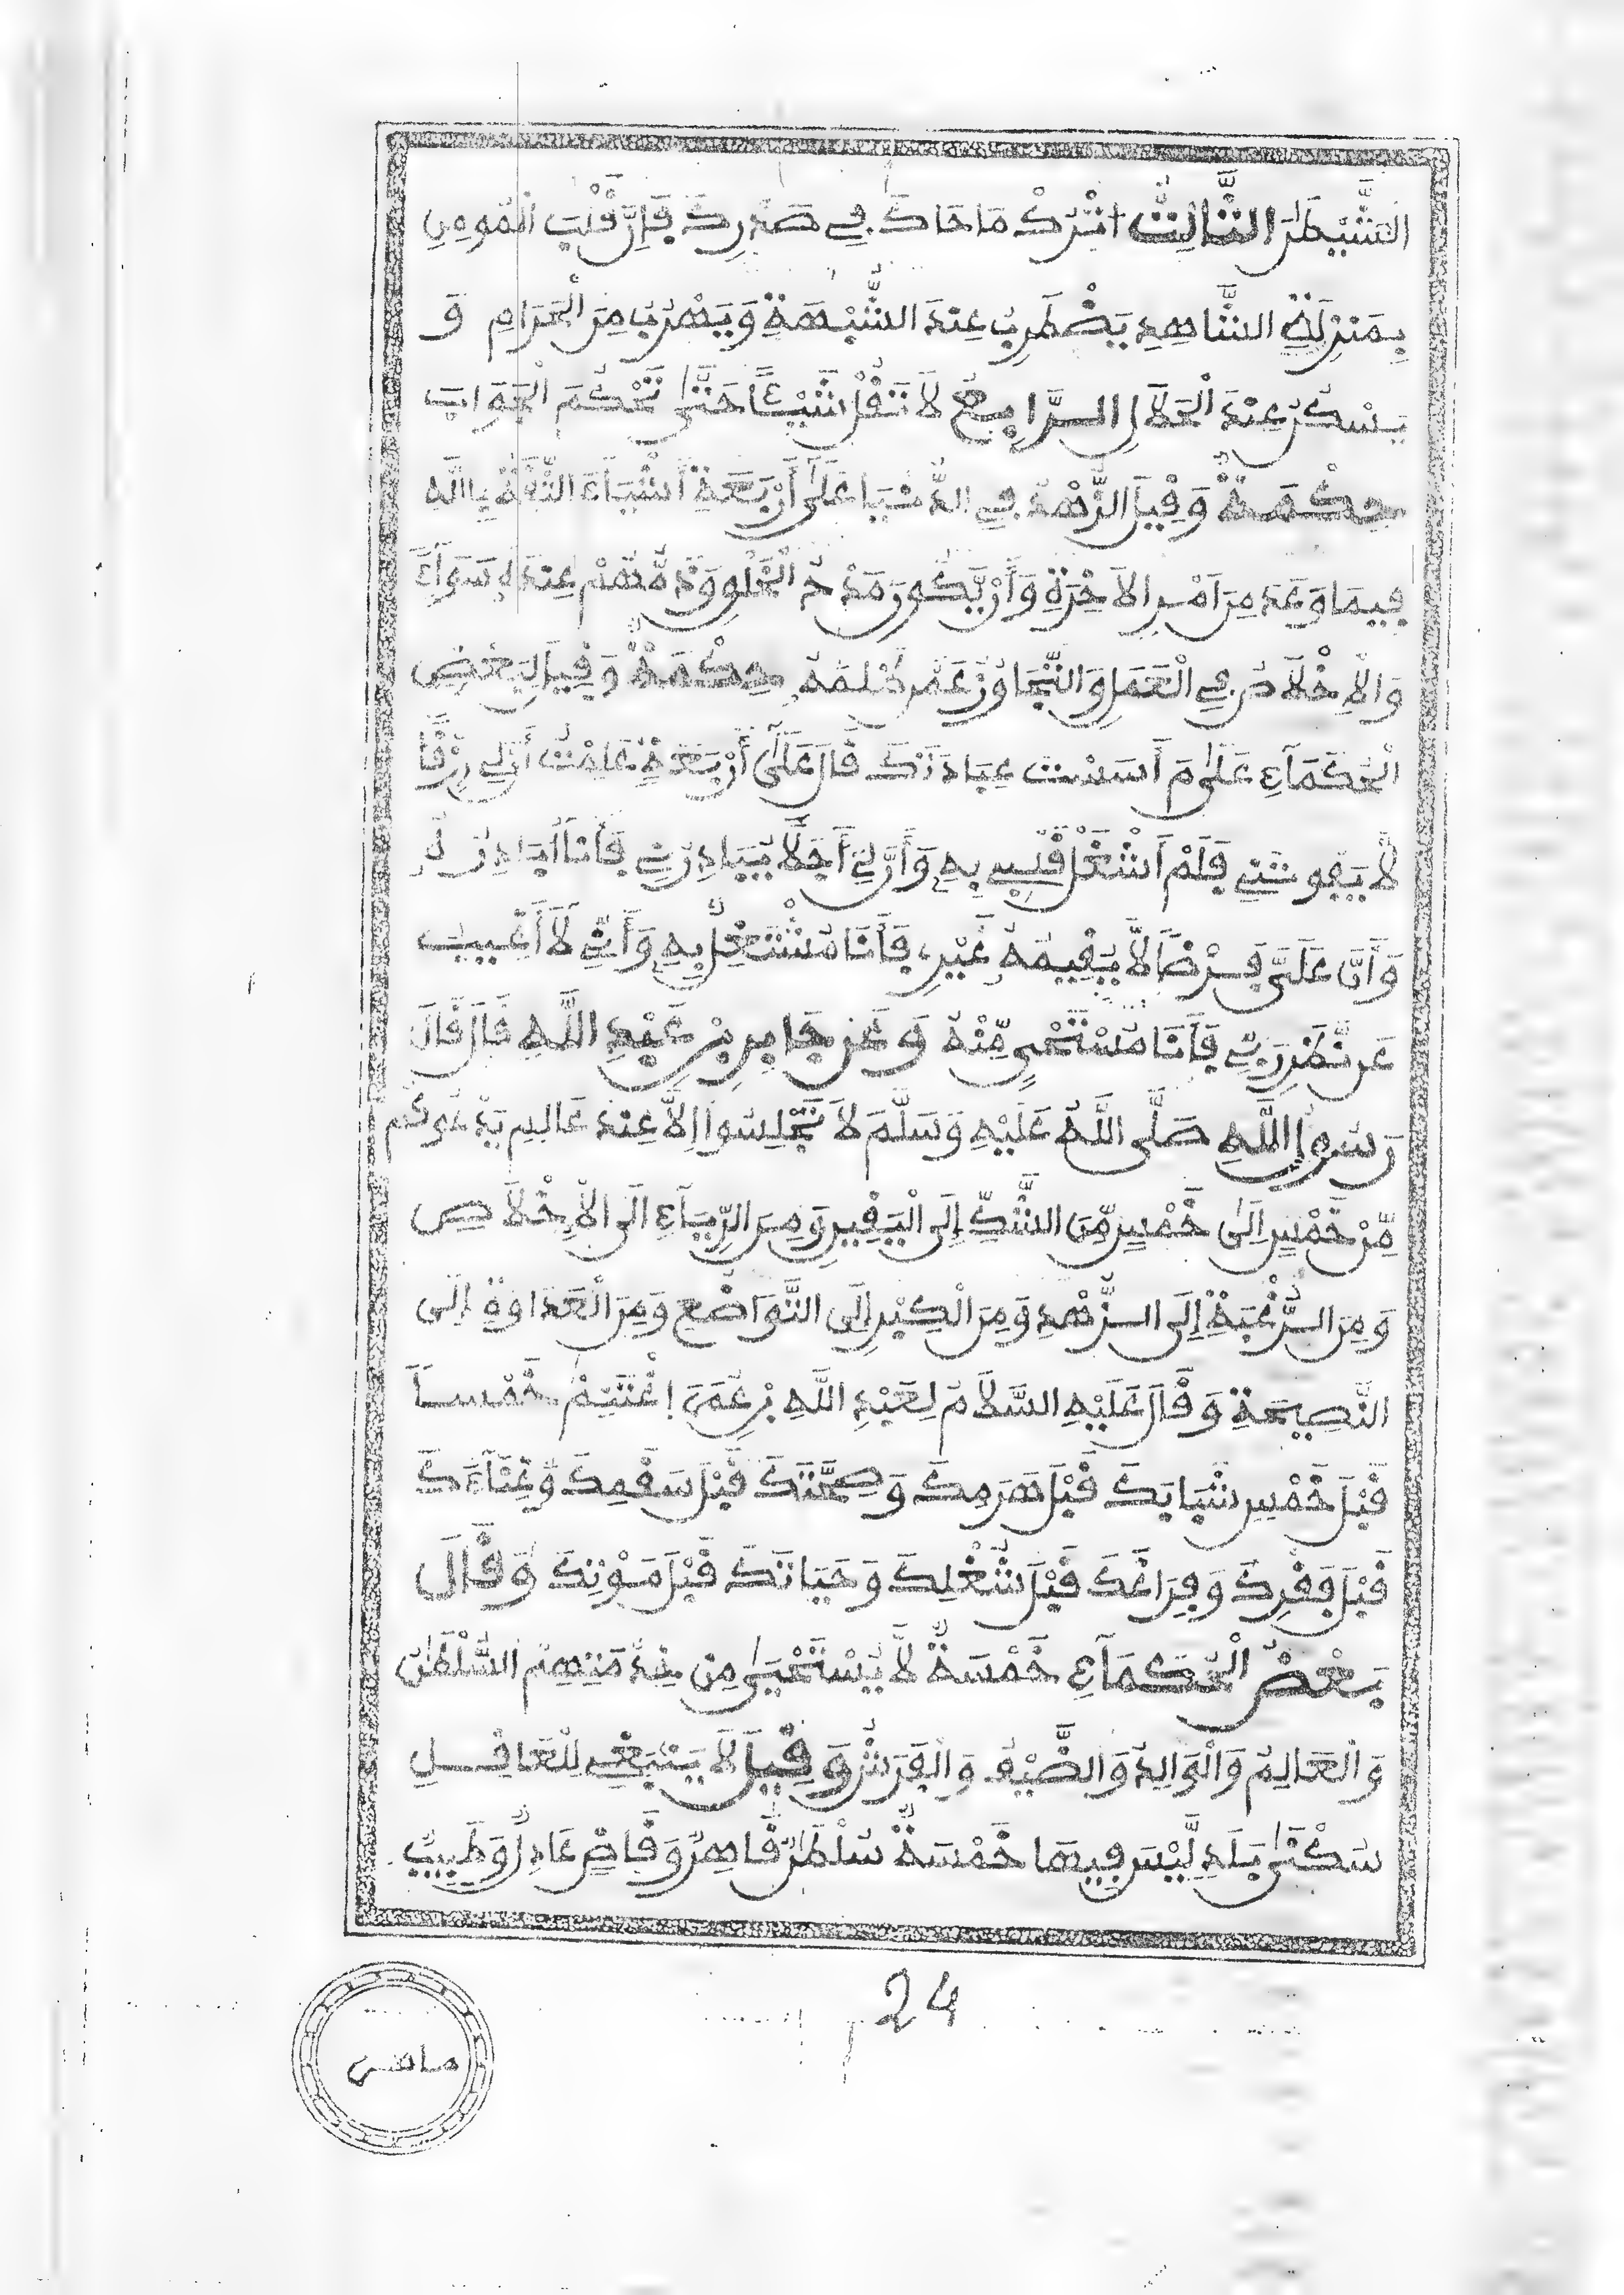 الشَّيْطَٰنَ الثَّالِثُ اتْرُكْ مَا حَاكَ فِي صَدْرِكَ فَإِنَّ قَلْبَ الْمُومِنِ
بِمَنزِلَةِ الشَّاهِدِ يَضْطَرِبُ عِندَ الشُّبْهَةِ وَيَهْرُبُ مِنَ الْحَرَامِ وَ
يَسْكُنُ عِنْدَ الْحَلَالِ الرَّابِعُ لَا تَقُلْ شَيْـًٔا حَتَّىٰ تَحْكُمَ الْجَوَابَ
حِكْمَةٌ وَقِيلَ الزُّهْدُ فِي الدُّنْيَا عَلَىٰٓ أَرْبَعَةِ أَشْيَآءَ الثِّقَةُ بِاللَّهِ
فِيمَا وَعَدَ مِنَ امْرِ الَاخِرَةِ وَأَنْ يَّكُونَ مَدْحُ الْخَلْقِ وَذَمُّهُمْ عِندَهُ سَوَآءً
وَالْإِخْلَاصُ فِي الْعَمَلِ وَالتَّجَاوُزُ عَمَّن ظَلَمَهُ حِكْمَةٌ وَقِيلَ لِبَعْضِ
الْحُكَمَآءِ عَلَىٰ مَ أَسَسْتَ عِبَادَتَكَ قَالَ عَلَىٰٓ أَرْبَعَةٍ عَلِمْتُ أَنَّ لِي رِزْقًا
لَّا يَفُوتُنِي فَلَمْ أَشْغَلْ قَلْبِي بِهِ وَأَنَّ لِيَ أَجَلًا يُبَادِرُنِي فَأَنَا أُبَادِرُ لَهُ
وَأَنَّ عَلَيَّ فَرْضًا لَّا يُقِيمُهُ غَيْرِي فَأَنَا مُشْتَغِلٌ بِهِ وَأَنِّي لَآ أَغِيبُ
عَن نَّظَرِ رَبِّي فَأَنَا مُسْتَحْيٍ مِّنْهُ وَعَن جَابِرِ بْنِ عَبْدِ اللَّهِ قَالَ قَالَ
رَسُولُ اللَّهِ صَلَّى اللَّهُ عَلَيْهِ وَسَلَّمَ لَا تَجْلِسُوا إِلَّا عِندَ عَالِمٍ يَدْعُوكُم
مِّنْ خَمْسٍ إِلَىٰ خَمْسٍ مِّنَ الشَّكِّ إِلَى الْيَقِينِ وَمِنَ الرِّيَآءِ الَى الْإِخْلَاصِ
وَمِنَ الرُّغْبَةِ إِلَى الزُّهْدِ وَمِنَ الْكِبْرِ إِلَى التَّوَاضُعِ وَمِنَ الْعَدَاوَةِ إِلَى
النَّصِيحَةِ وَقَالَ عَلَيْهِ السَّلَامُ لِعَبْدِ اللَّهِ بْنِ عُمَرَ اغْتَنِمْ خَمْسًا
قَبْلَ خَمْسٍ شَبَابَكَ قَبْلَ هَرَمِكَ وَصِحَّتَكَ قَبْلَ سَقَمِكَ وَغِنَآءَكَ
قَبْلَ فَقْرِكَ وَفَرَاغَكَ قَبْلَ شُغْلِكَ وَحَيَاتَكَ قَبْلَ مَوْتِكَ وَقَالَ
بَعْضُ الْحُكَمَآءِ خَمْسَةٌ لَّا يُسْتَحْيَىٰ مِنْ خِدْمَتِهِمُ السُّلْطَٰنُ
وَالْعَالِمُ وَالْوَالِدُ وَالضَّيْفُ وَالْفَرَسُ وَقِيلَ لَا يَنْبَغِي لِلْعَاقِلِ
سَكْنَىٰ بَلَدٍ لَّيْسَ فِيهَا خَمْسَةٌ سُلْطَٰنٌ قَاهِرٌ وَقَاضٍ عَادِلٌ وَطَبِيبٌ
24